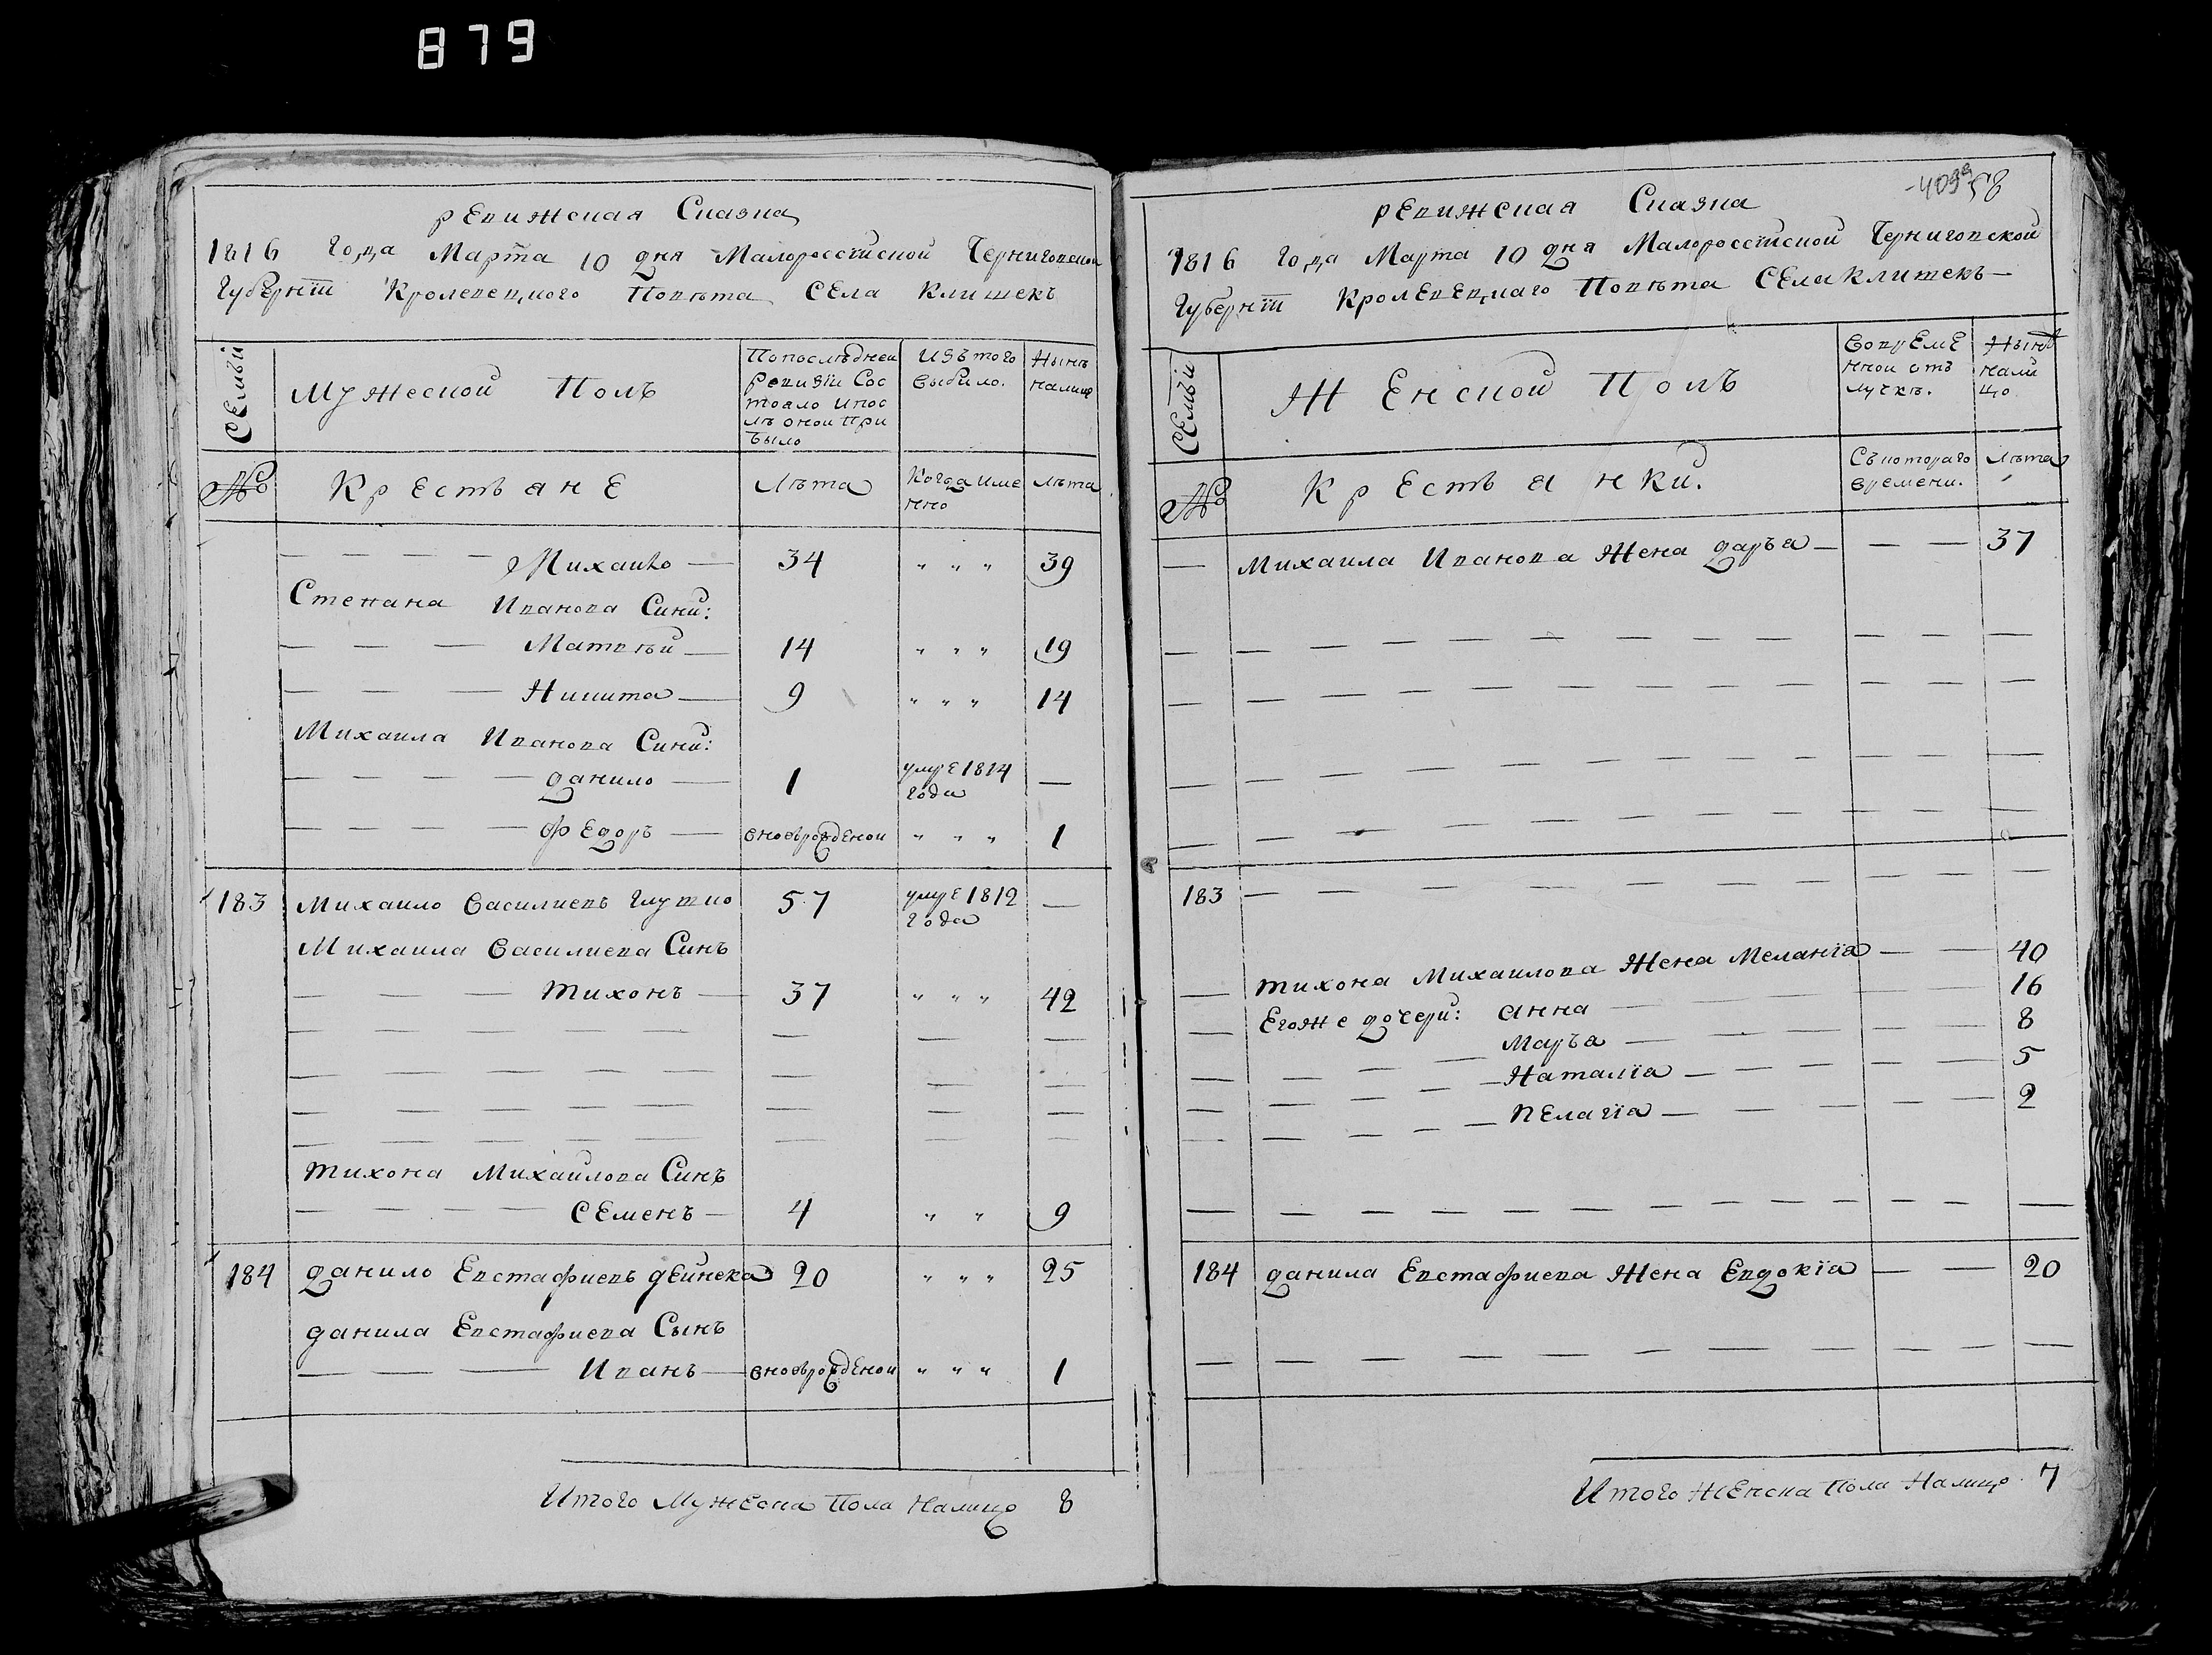 879
ревижская Сказка
1816 года Марта 10 дня Малоросстиской Черниговской
Губернїи Кролевецкого Повѣта Села Клишекъ
Семьи
Мужеской Полъ
Попоследнеи ревизїи Состояло ипослѣ онои прибыло
Изъ того выбыло.
Нынѣ налицо
№
Крестьяне
Лѣта
Когда именно
лѣта
— — — — Михаило — 34 " " " 39
Степана Иванова Сини:
— — — Матвѣй — 14 " " " 19
— — — Никита — 9 " " " 14
Михаила Иванова Сини:
— — — — данило — 1 умре 1814 года —
— — — — федоръ — вновърожденои " " " 1
183 Михаило Василиевъ Глушко 57 умре 1812 года —
Михаила Василиева Синъ
— — — тихонъ — 37 " " " 42
тихона Михаилова Синъ
— — — — Семенъ — 4 " " 9
184 данило Евстафиевъ дейнека 20 " " " 25
данила Евстафиева Сынъ
— — Иванъ — вновърожденои " " " 1
Итого Мужеска Пола Налицо 8
-409 58
ревижская Сказка
1816 года Марта 10 дня Малоросстиской Черниговской
Губернїи Кролевецкаго Повѣта Села Клишекъ —
Семьи
Женской Полъ
Вовременной отлучкѣ.
Нынѣ налицо.
№
Крестьянки.
Съкотораго времени.
Лѣта
— Михаила Иванова Жена даръа — — — 37
183 — — — — — — — — —
— тихона Михаилова Жена Меланїа — — 40
— Егоже дочери: Анна — — — 16
— Маръа — — — 8
— — — — Наталїа — — — 5
— — — — пелагїа — — — 2
184 данила Евстафиева Жена Евдокїа — — 20
Итого Женска Пола Налицо. 7